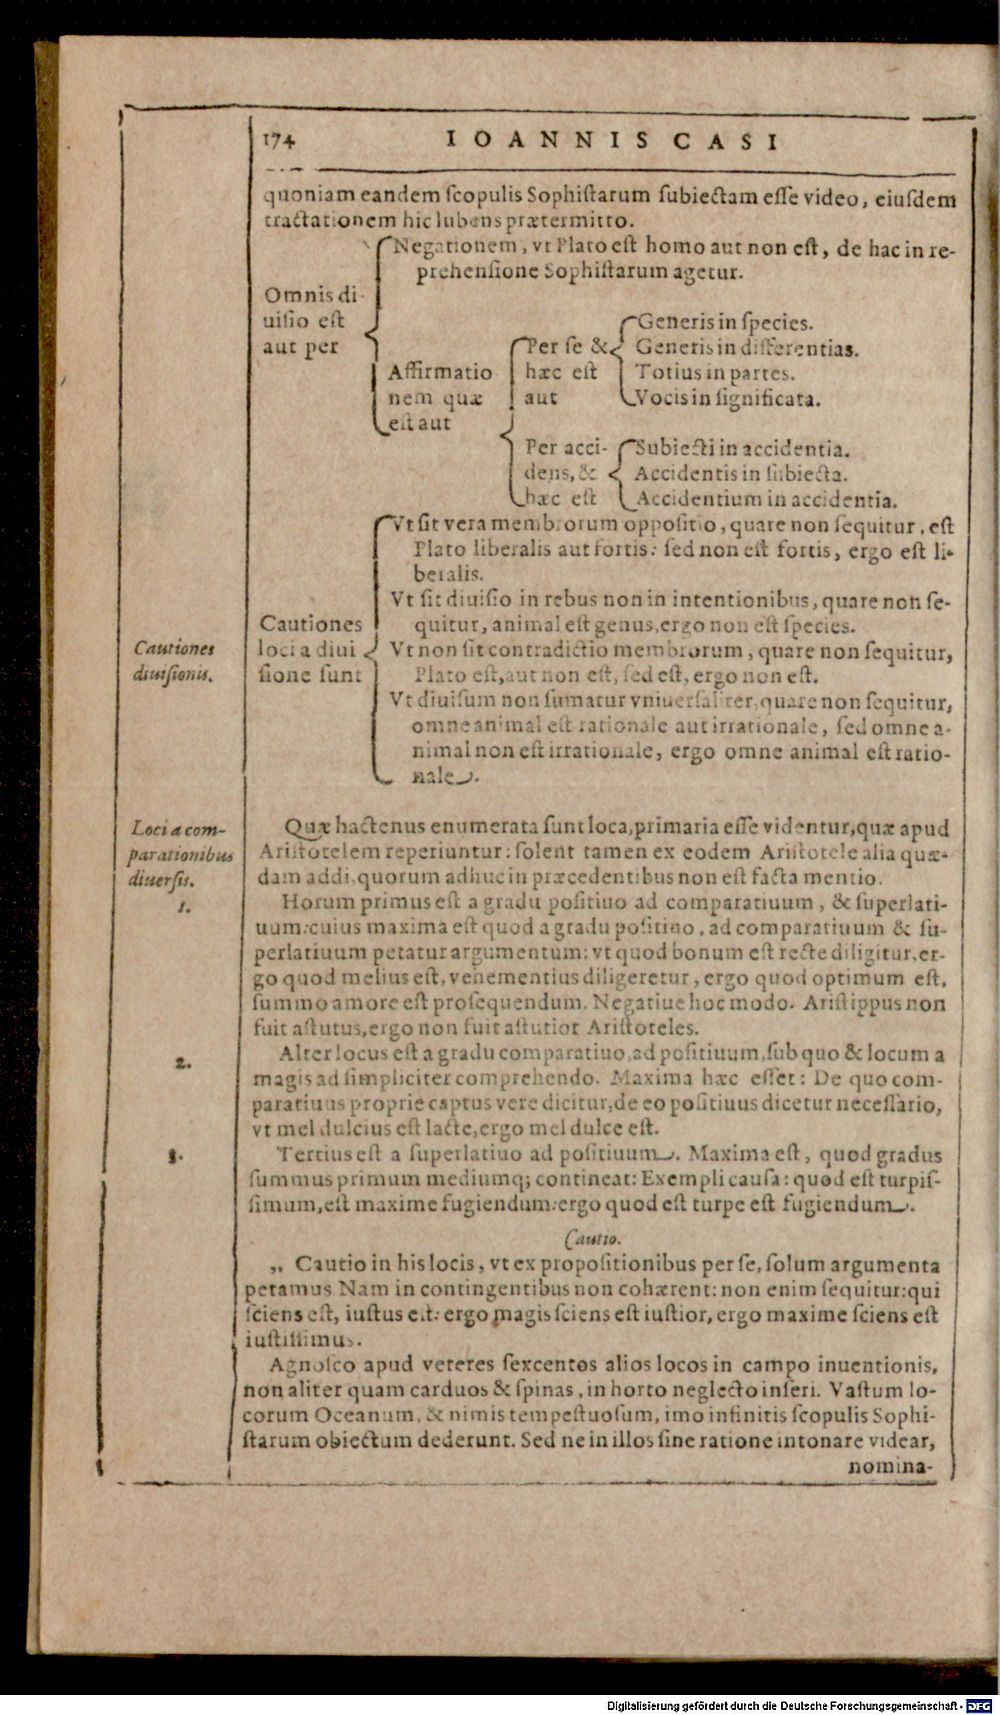 174 IOANNIS CASI
quoniam eandem ſcopulis Sophiſtarum ſubiectam eſſe video, eiuſdem
tractationem hic lubens prætermitto.
Negationem, vt Plato eſt homo aut non eſt, de hac in re-
prehenſione Sophiſtarum agetur.
Omnis di-
uiſio eſt
aut per
Affirmatio
nem quæ
eſt aut
Per ſe &
hæc eſt
aut
Generis in ſpecies.
Generis in differentias.
Totius in partes.
Vocis in ſignificata.
Per acci-
dens, &
hæc eſt
Subiecti in accidentia.
Accidentis in ſubiecta.
Accidentium in accidentia.
Cautiones
diuiſionis.
Cautiones
loci a diui
ſione ſunt
Vt ſit vera membrorum oppoſitio, quare non ſequitur, eſt
Plato liberalis aut fortis: ſed non eſt fortis, ergo eſt li-
beralis.
Vt ſit diuiſio in rebus non in intentionibus, quare non ſe-
quitur, animal eſt genus, ergo non eſt ſpecies.
Vt non ſit contradictio membrorum, quare non ſequitur,
Plato eſt, aut non eſt, ſed eſt, ergo non eſt.
Vt diuiſum non ſumatur vniuerſaliter, quare non ſequitur,
omne animal eſt rationale aut irrationale, ſed omne a-
nimal non eſt irrationale, ergo omne animal eſt ratio-
nale.
Loci a com-
parationibus
diuerſis.
1.
Quæ hactenus enumerata ſunt loca, primaria eſſe videntur, quæ apud
Ariſtotelem reperiuntur: ſolent tamen ex eodem Ariſtotele alia quæ-
dam addi, quorum adhuc in præcedentibus non eſt facta mentio.
Horum primus eſt a gradu poſitiuo ad comparatiuum, & ſuperlati-
uum: cuius maxima eſt quod a gradu poſitiuo, ad comparatiuum & ſu-
perlatiuum petatur argumentum: vt quod bonum eſt recte diligitur, er-
go quod melius eſt, vehementius diligeretur, ergo quod optimum eſt,
ſummo amore eſt proſequendum. Negatiue hoc modo. Ariſtippus non
fuit aſtutus, ergo non fuit aſtutior Ariſtoteles.
2.
Alter locus eſt a gradu comparatiuo, ad poſitiuum, ſub quo & locum a
magis ad ſimpliciter comprehendo. Maxima hæc eſſet: De quo com-
paratiuus proprie captus vere dicitur, de eo poſitiuus dicetur neceſſario,
vt mel dulcius eſt lacte, ergo mel dulce eſt.
3.
Tertius eſt a ſuperlatiuo ad poſitiuum. Maxima eſt, quod gradus
ſummus primum mediumq; contineat: Exempli cauſa: quod eſt turpiſ-
ſimum, eſt maxime fugiendum: ergo quod eſt turpe eſt fugiendum.
Cautio.
„ Cautio in his locis, vt ex propoſitionibus per ſe, ſolum argumenta
petamus. Nam in contingentibus non cohærent: non enim ſequitur: qui
ſciens eſt, iuſtus eſt: ergo magis ſciens eſt iuſtior, ergo maxime ſciens eſt
iuſtiſſimus.
Agnoſco apud veteres ſexcentos alios locos in campo inuentionis,
non aliter quam carduos & ſpinas, in horto neglecto inſeri. Vaſtum lo-
corum Oceanum, & nimis tempeſtuoſum, imo infinitis ſcopulis Sophi-
ſtarum obiectum dederunt. Sed ne in illos ſine ratione intonare videar,
nomina-
Digitalisierung gefördert durch die Deutsche Forschungsgemeinschaft - DFG